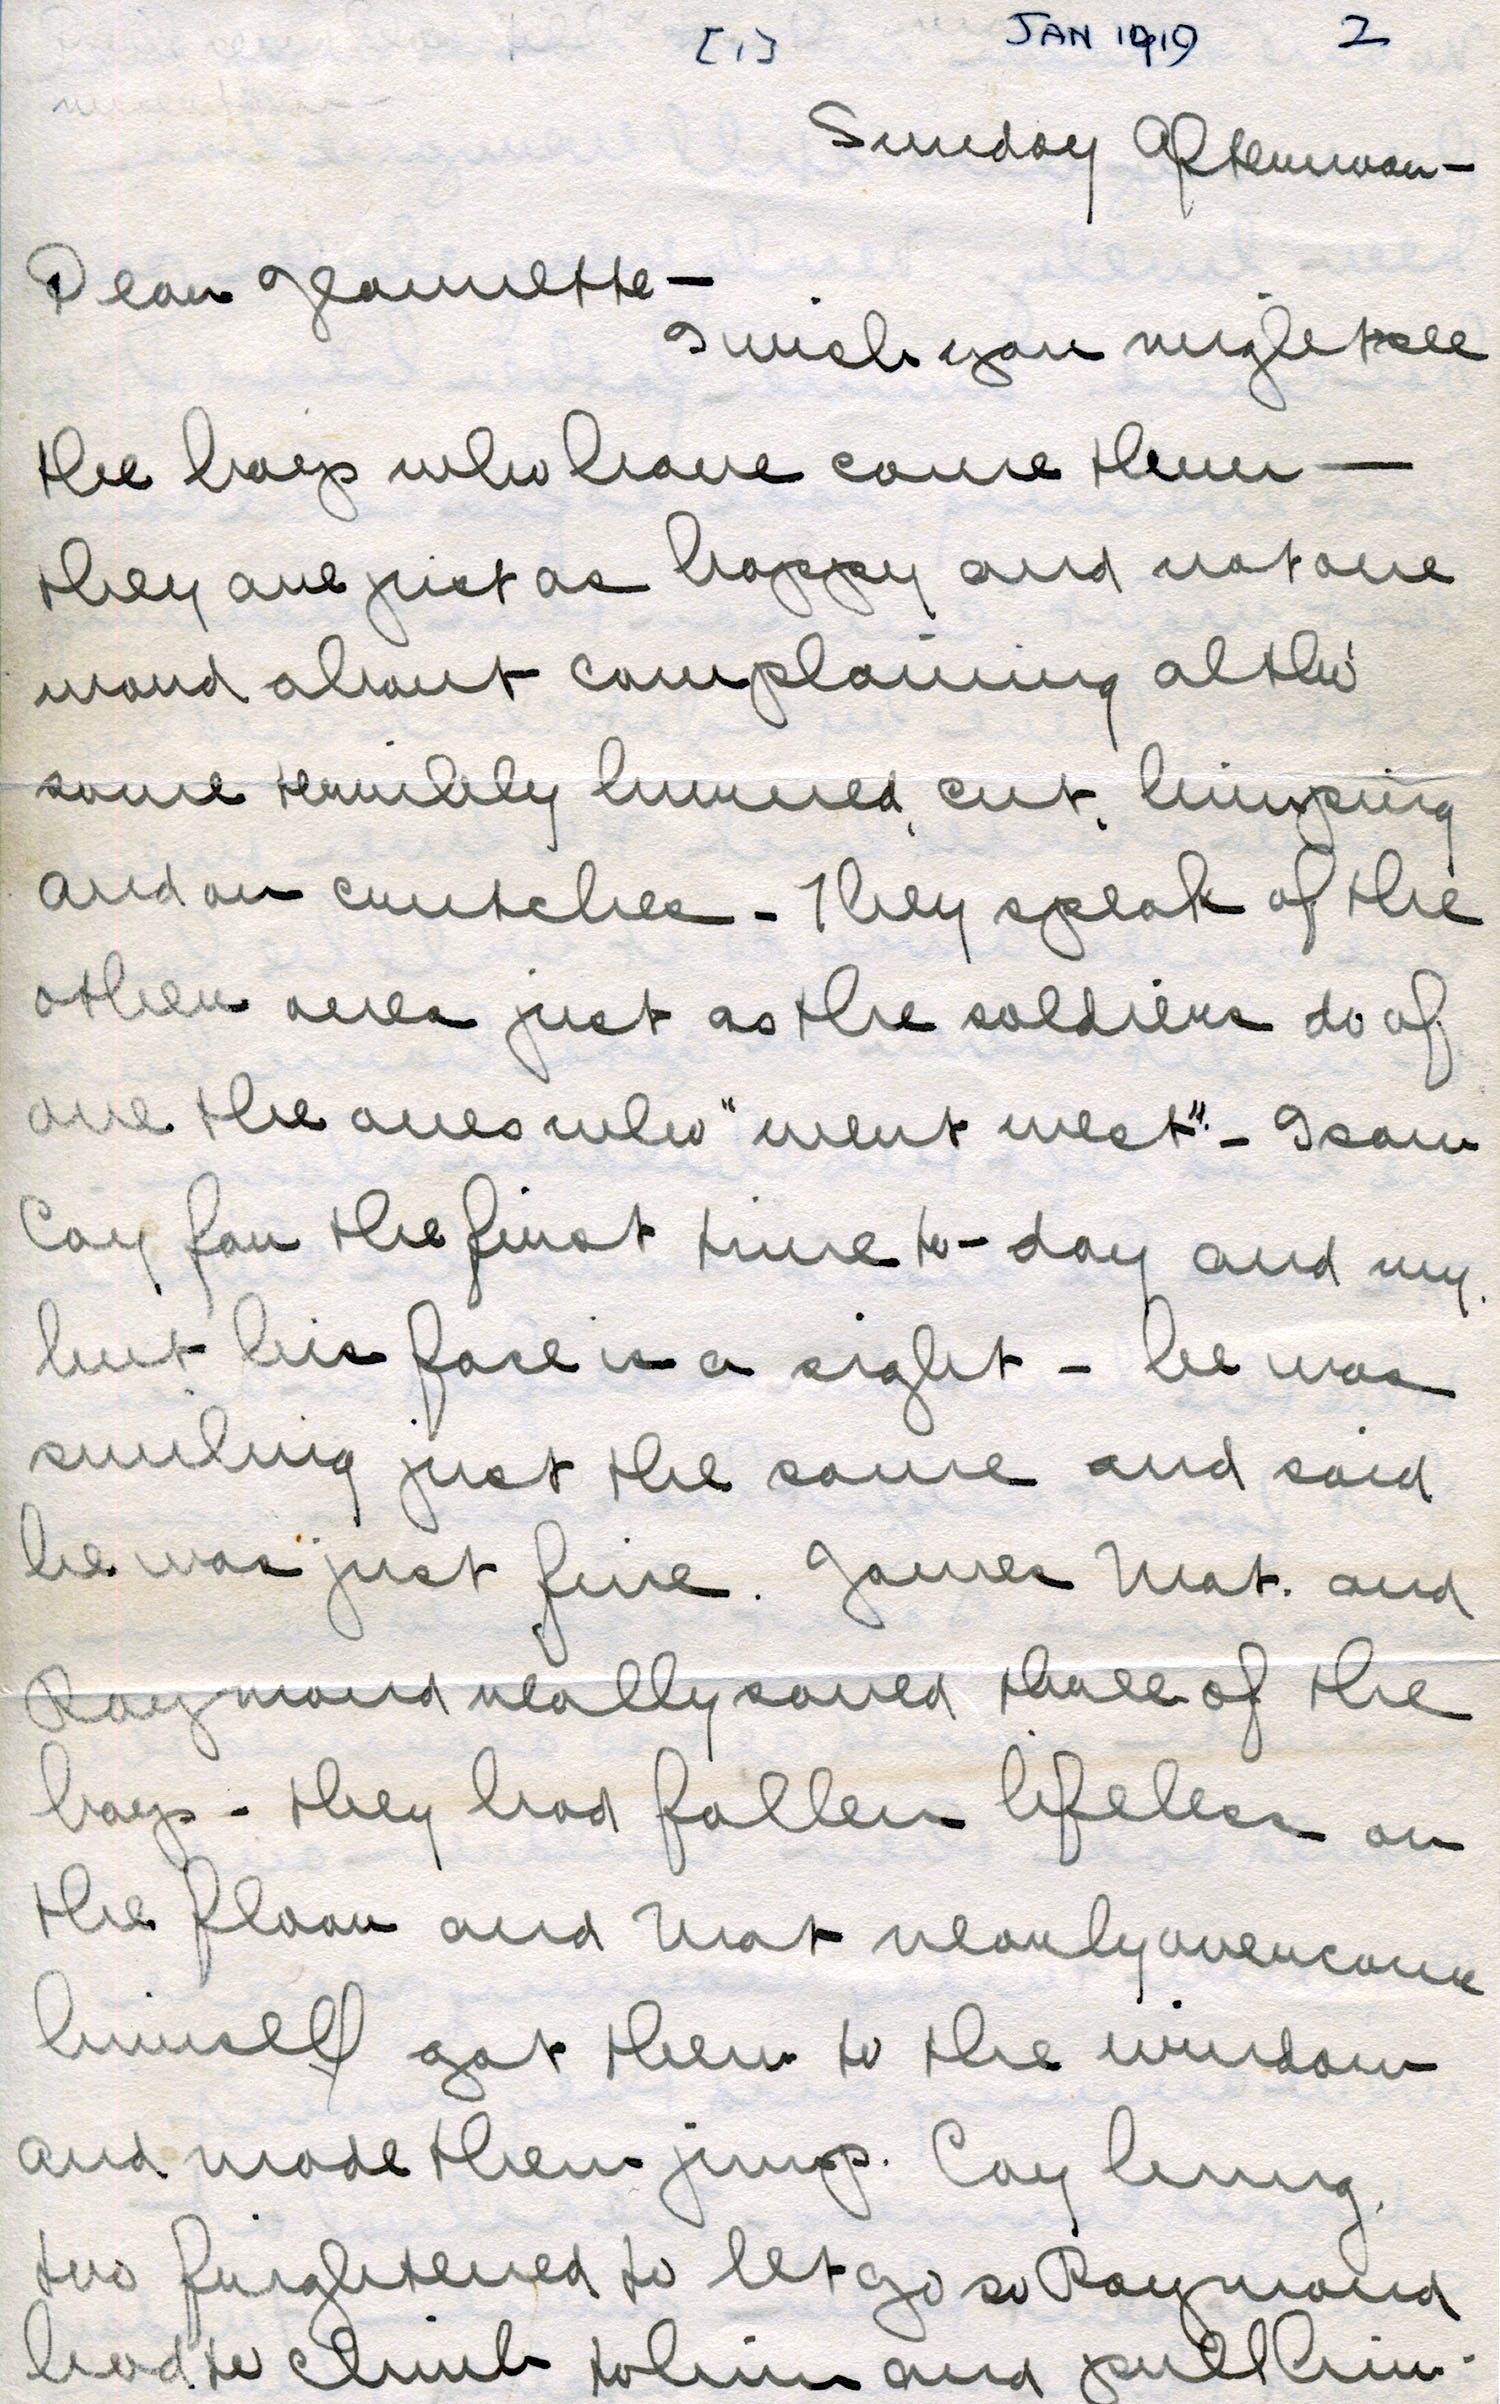 [1] JAN 1919 2
Sunday Afternoon—
Dear Jeannette—
I wish you might see
the boys who have come thru—
they are just as happy and not one
word about complaining altho'
some terribly burned, cut, limping
and on crutches - They speak of the
other ones just as the soldiers do of
are the ones who "went west". - I saw
Coy for the first time to-day and my,
but his face is a sight - he was
smiling just the same and said
he was just fine. James Mat. and
Raymond really saved three of the
boys - they had fallen lifeless on
the floor and Mat nearly overcome
himself got them to the window
and made them jump. Coy hung,
too frightened to let go so Raymond
had to climb to him and pull him.